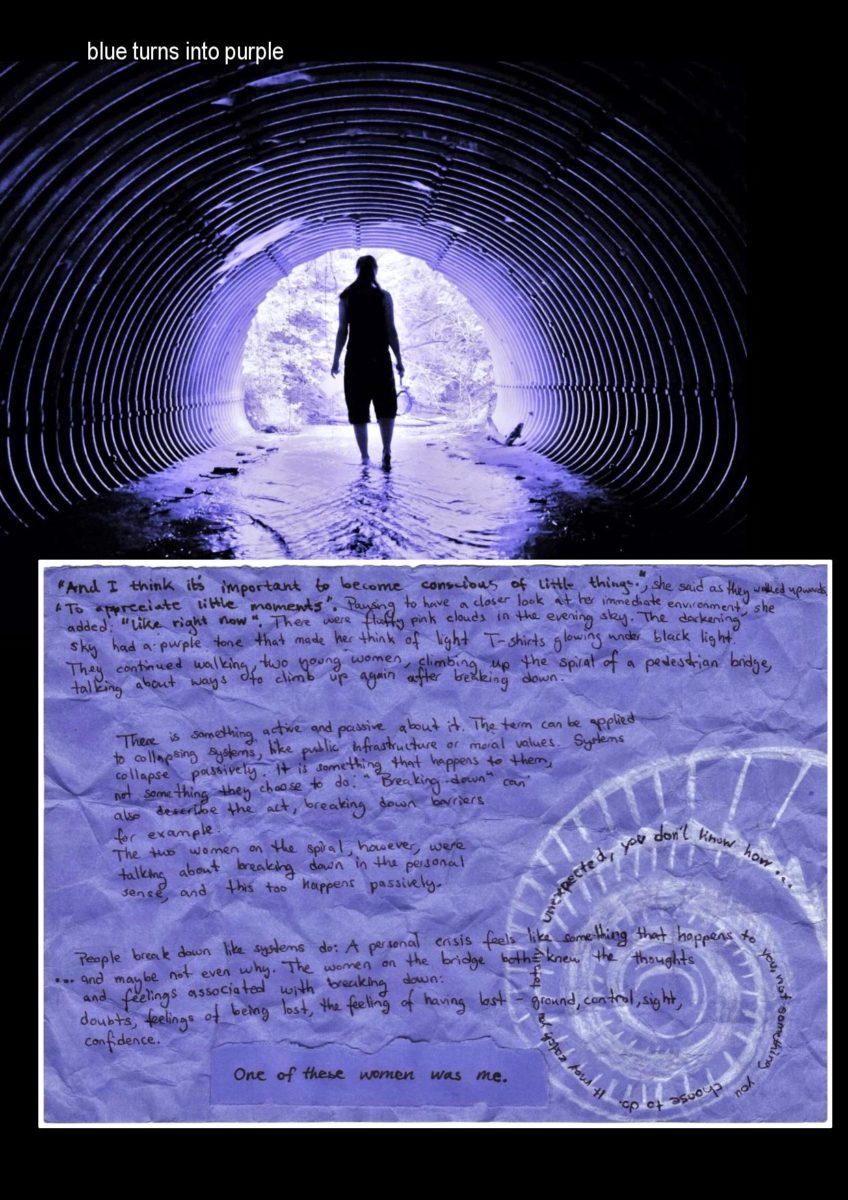 blue turns into purple
"And I think it's important to become conscious of little things.", she said as they walked upwards.
"To appreciate little moments". Pausing to have a closer look at her immediate environment, she
added: "like right now". There were fluffy pink clouds in the evening sky. The darkening
sky had a purple tone that made her think of light T-shirts glowing under black light.
They continued walking, two young women, climbing up the spiral of a pedestrian bridge,
talking about ways to climb up again after breaking down.
There is something active and passive about it. The term can be applied
to collapsing systems, like public infrastructure or moral values. Systems
collapse passively: it is something that happens to them,
not something they choose to do. "Breaking down" can
also describe the act, breaking down barriers
for example.
The two women on the spiral, however, were
talking about breaking down in the personal
sense, and this too happens passively.
People break down like systems do: A personal crisis feels like something that happens to
you, not something you choose to do. It may catch you totally unexpected, you don't know how...
...and maybe not even why. The women on the bridge both knew the thoughts
and feelings associated with breaking down:
doubts, feelings of being lost, the feeling of having lost - ground, control, sight,
confidence.
One of these women was me.